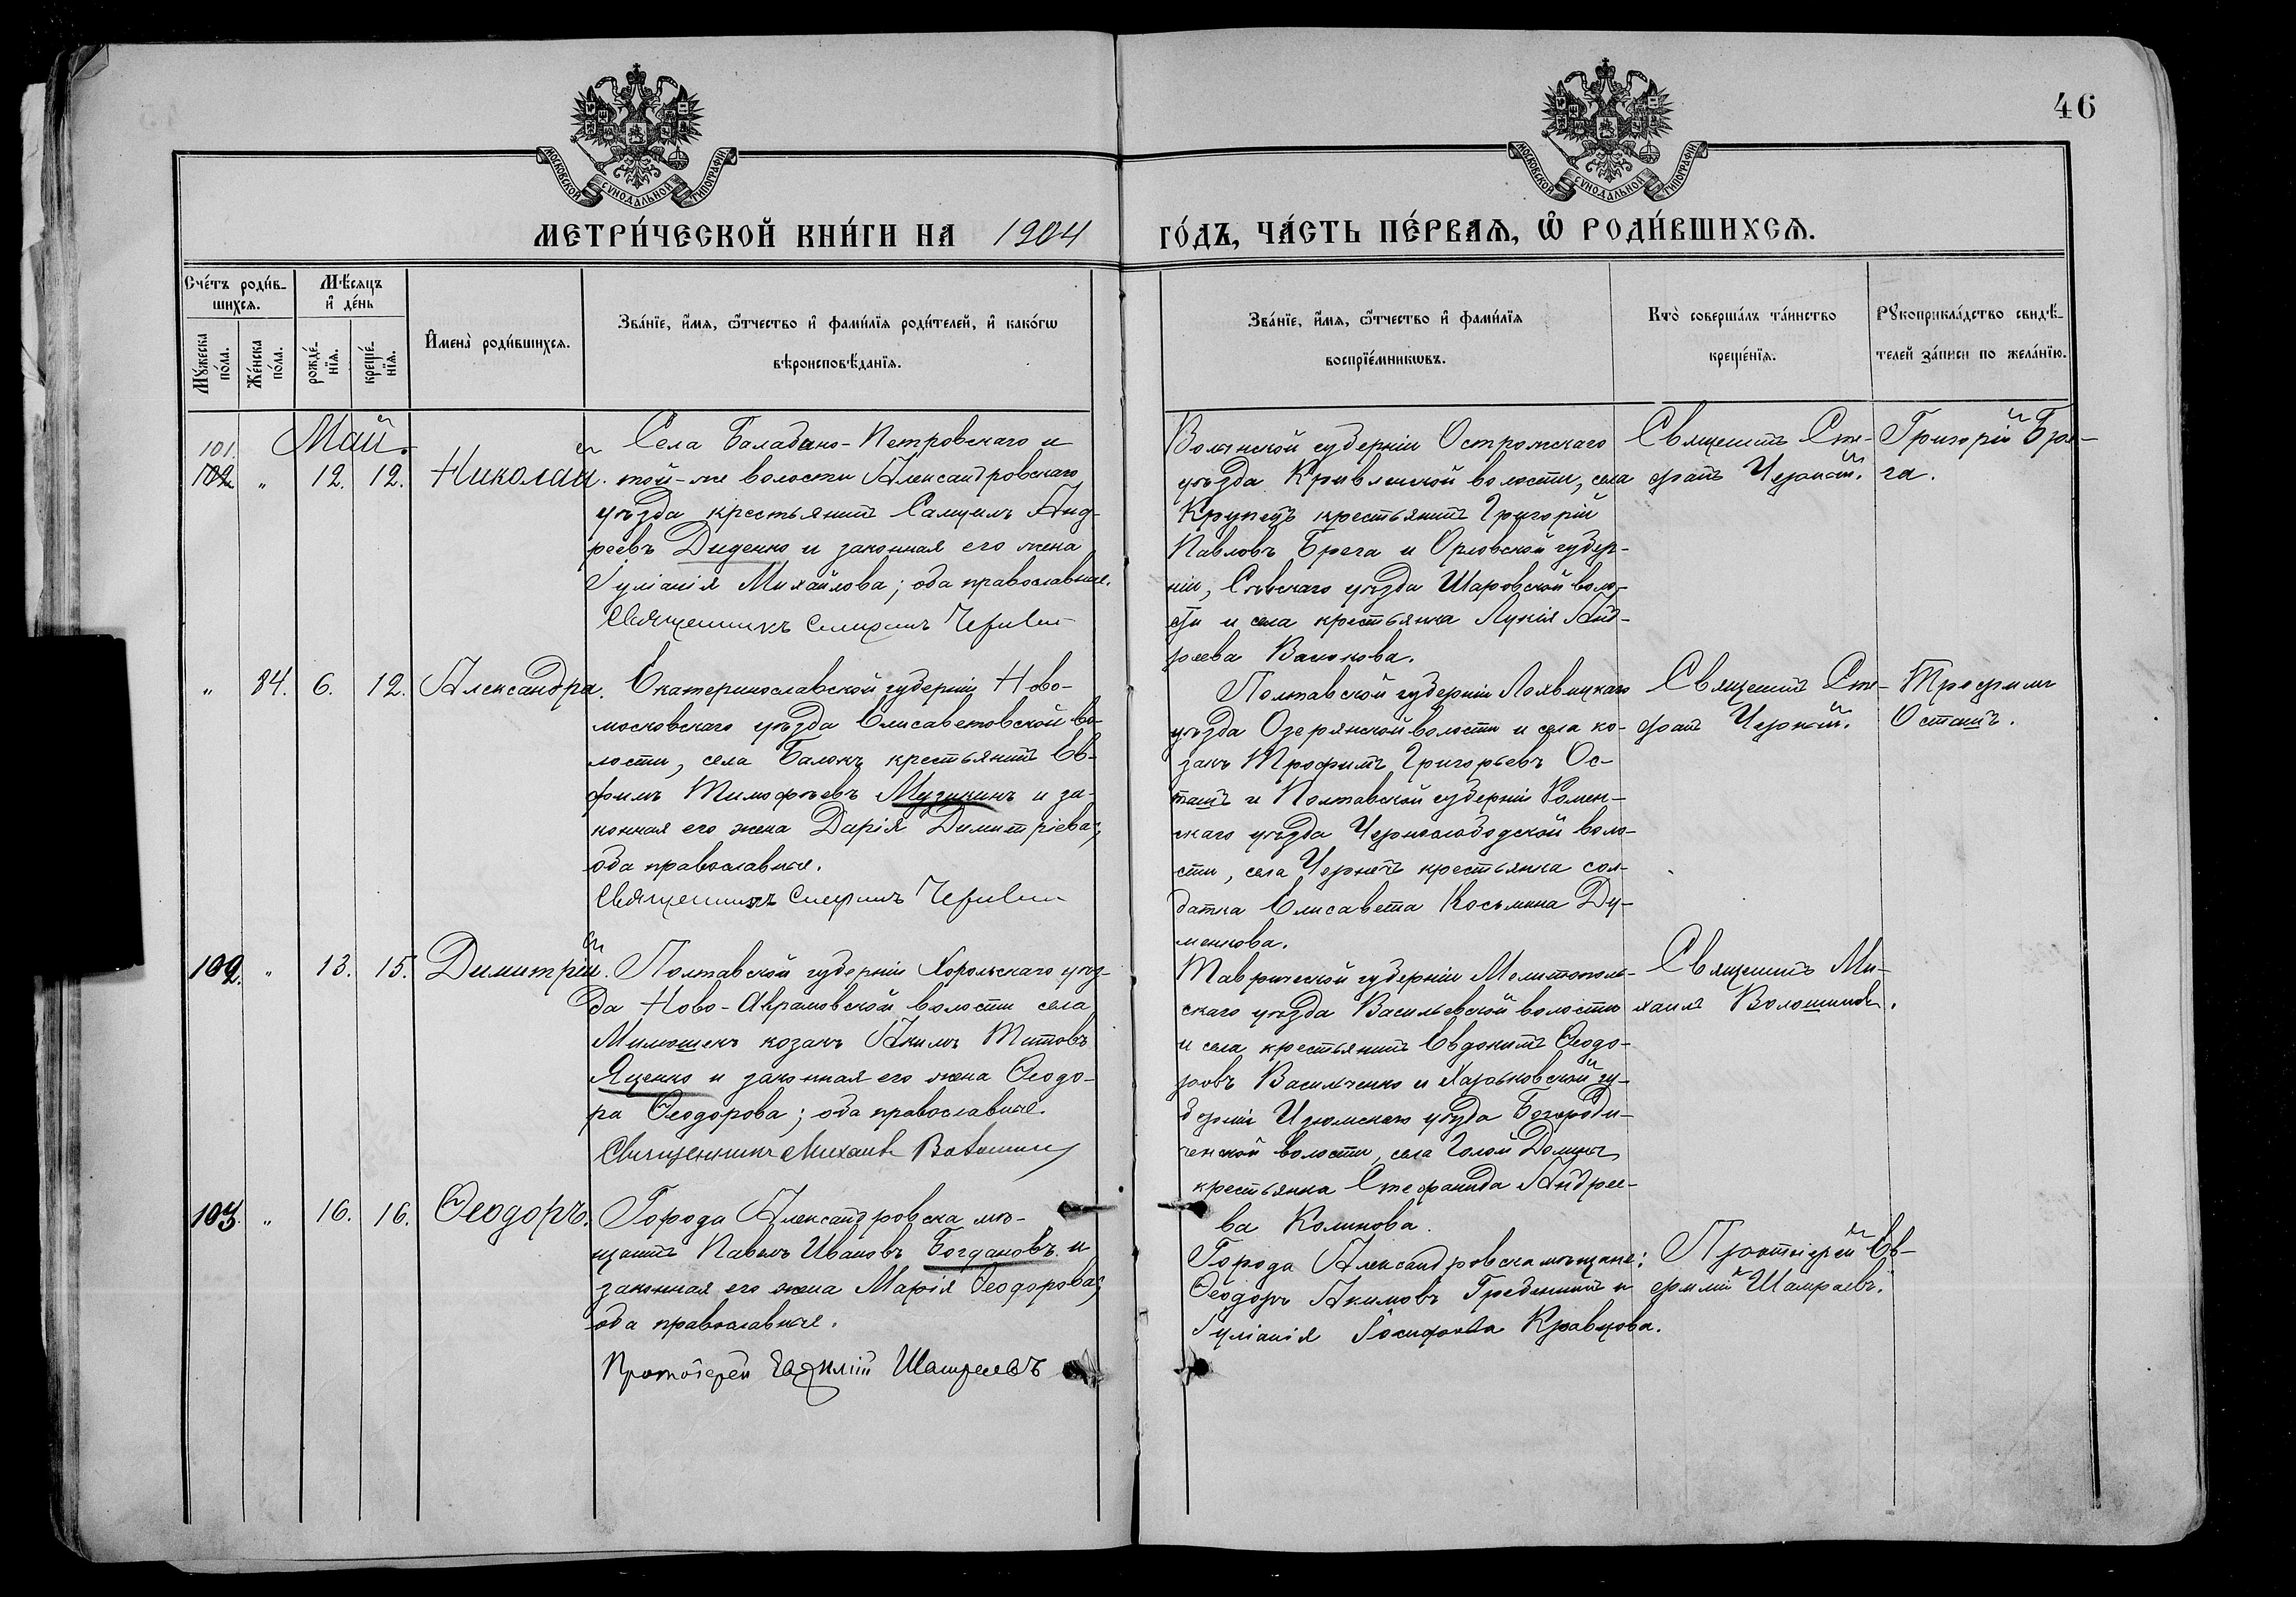 46
МОСКОВСКОЙ СѴНОДАЛЬНОЙ ТИПОГРАФІИ
МОСКОВСКОЙ СѴНОДАЛЬНОЙ ТИПОГРАФІИ
МЕТРИ́ЧЕСКОЙ КНИ́ГИ НА 1904
ГО́ДЪ, ЧА́СТЬ ПЕ́РВАѦ, Ѽ РОДИ́ВШИХСѦ.
Сче́тъ роди́в-
шихсѧ.
Мѣ́сѧцъ
и҆ де́нь
Мꙋ́жеска
по́ла.
Же́нска
по́ла.
рожде́-
нїѧ.
креще́-
нїѧ.
И҆мена̀ роди́вшихсѧ.
Зва́нїе, и҆́мѧ, ѻ҆́тчество и҆ фами́лїѧ роди́телей, и҆ како́гѡ
вѣроисповѣ́данїѧ.
Зва́нїе, и҆́мѧ, ѻ҆́тчество и҆ фами́лїѧ
воспрїе́мникѡвъ.
Кто̀ соверша́лъ та́инство
креще́нїѧ.
Рꙋкоприкла́дство свидѣ́-
телей за́писи по жела́нїю.
Май.
101.
102 " 12. 12. Николай.
Села Балабино-Петровскаго и
той-же волости Александровскаго
уѣзда крестьянинъ Самуилъ Анд-
реевъ Диденко и законная его жена
Іуліанія Михайлова; оба православные.
Священникъ Стефанъ
Волынской губерніи Острожскаго
уѣзда Кривинской волости, села
Крупецъ крестьянинъ Григорій
Павловъ Брега и Орловской губер-
ніи, Сѣвскаго уѣзда Шаровской воло-
сти и села крестьянка Лукія Анд-
реева
Священникъ Сте-
фанъ
Григорій Бре-
га.
" 84. 6. 12. Александра.
Екатеринославской губерніи Ново-
московскаго уѣзда Елисаветовской во-
лости, села Балокъ крестьянинъ Ев-
фимъ Тимофѣевъ Музыкинъ и за-
конная его жена Дарія Димитріева;
оба православные.
Священникъ Стефанъ
Полтавской губерніи Лохвицкаго
уѣзда Озерянской волости и села ко-
закъ Трофимъ Григорьевъ Ос-
ташъ и Полтавской губерніи Ромен-
скаго уѣзда Чернослободской воло-
сти, села крестьянка сол-
датка Елисавета Косьмина Ду-
менкова.
Священникъ Сте-
фанъ
Трофимъ
Осташъ.
102. " 13. 15. Димитрій.
Полтавской губерніи Хорольскаго уѣз-
да Ново-Аврамовской волости села
Милюшекъ козакъ Акимъ Титовъ
Яценко и законная его жена Ѳеодо-
ра Ѳеодорова; оба православные.
Священникъ Михаилъ Волошинъ
Таврической губерніи Мелитополь-
скаго уѣзда Васильевской волости
и села крестьянинъ Евдокимъ Ѳеодо-
ровъ Васильченко и Харьковской гу-
берніи Изюмскаго уѣзда Богороди-
ченской волости, села Голой Долины
крестьянка Стефанида Андрее-
ва Коликова.
Священникъ Ми-
хаилъ Волошиновъ.
103. " 16. 16. Ѳеодоръ.
Города Александровска мѣ-
щанинъ Павелъ Ивановъ Богдановъ и
законная его жена Марія Ѳеодорова;
оба православные.
Протоіерей Евфимій Шамраевъ
Города Александровска мѣщане:
Ѳеодоръ Акимовъ Гребенникъ и
Іуліанія Іосифова Кравцова.
Протоіерей Ев-
фимій Шамраевъ.